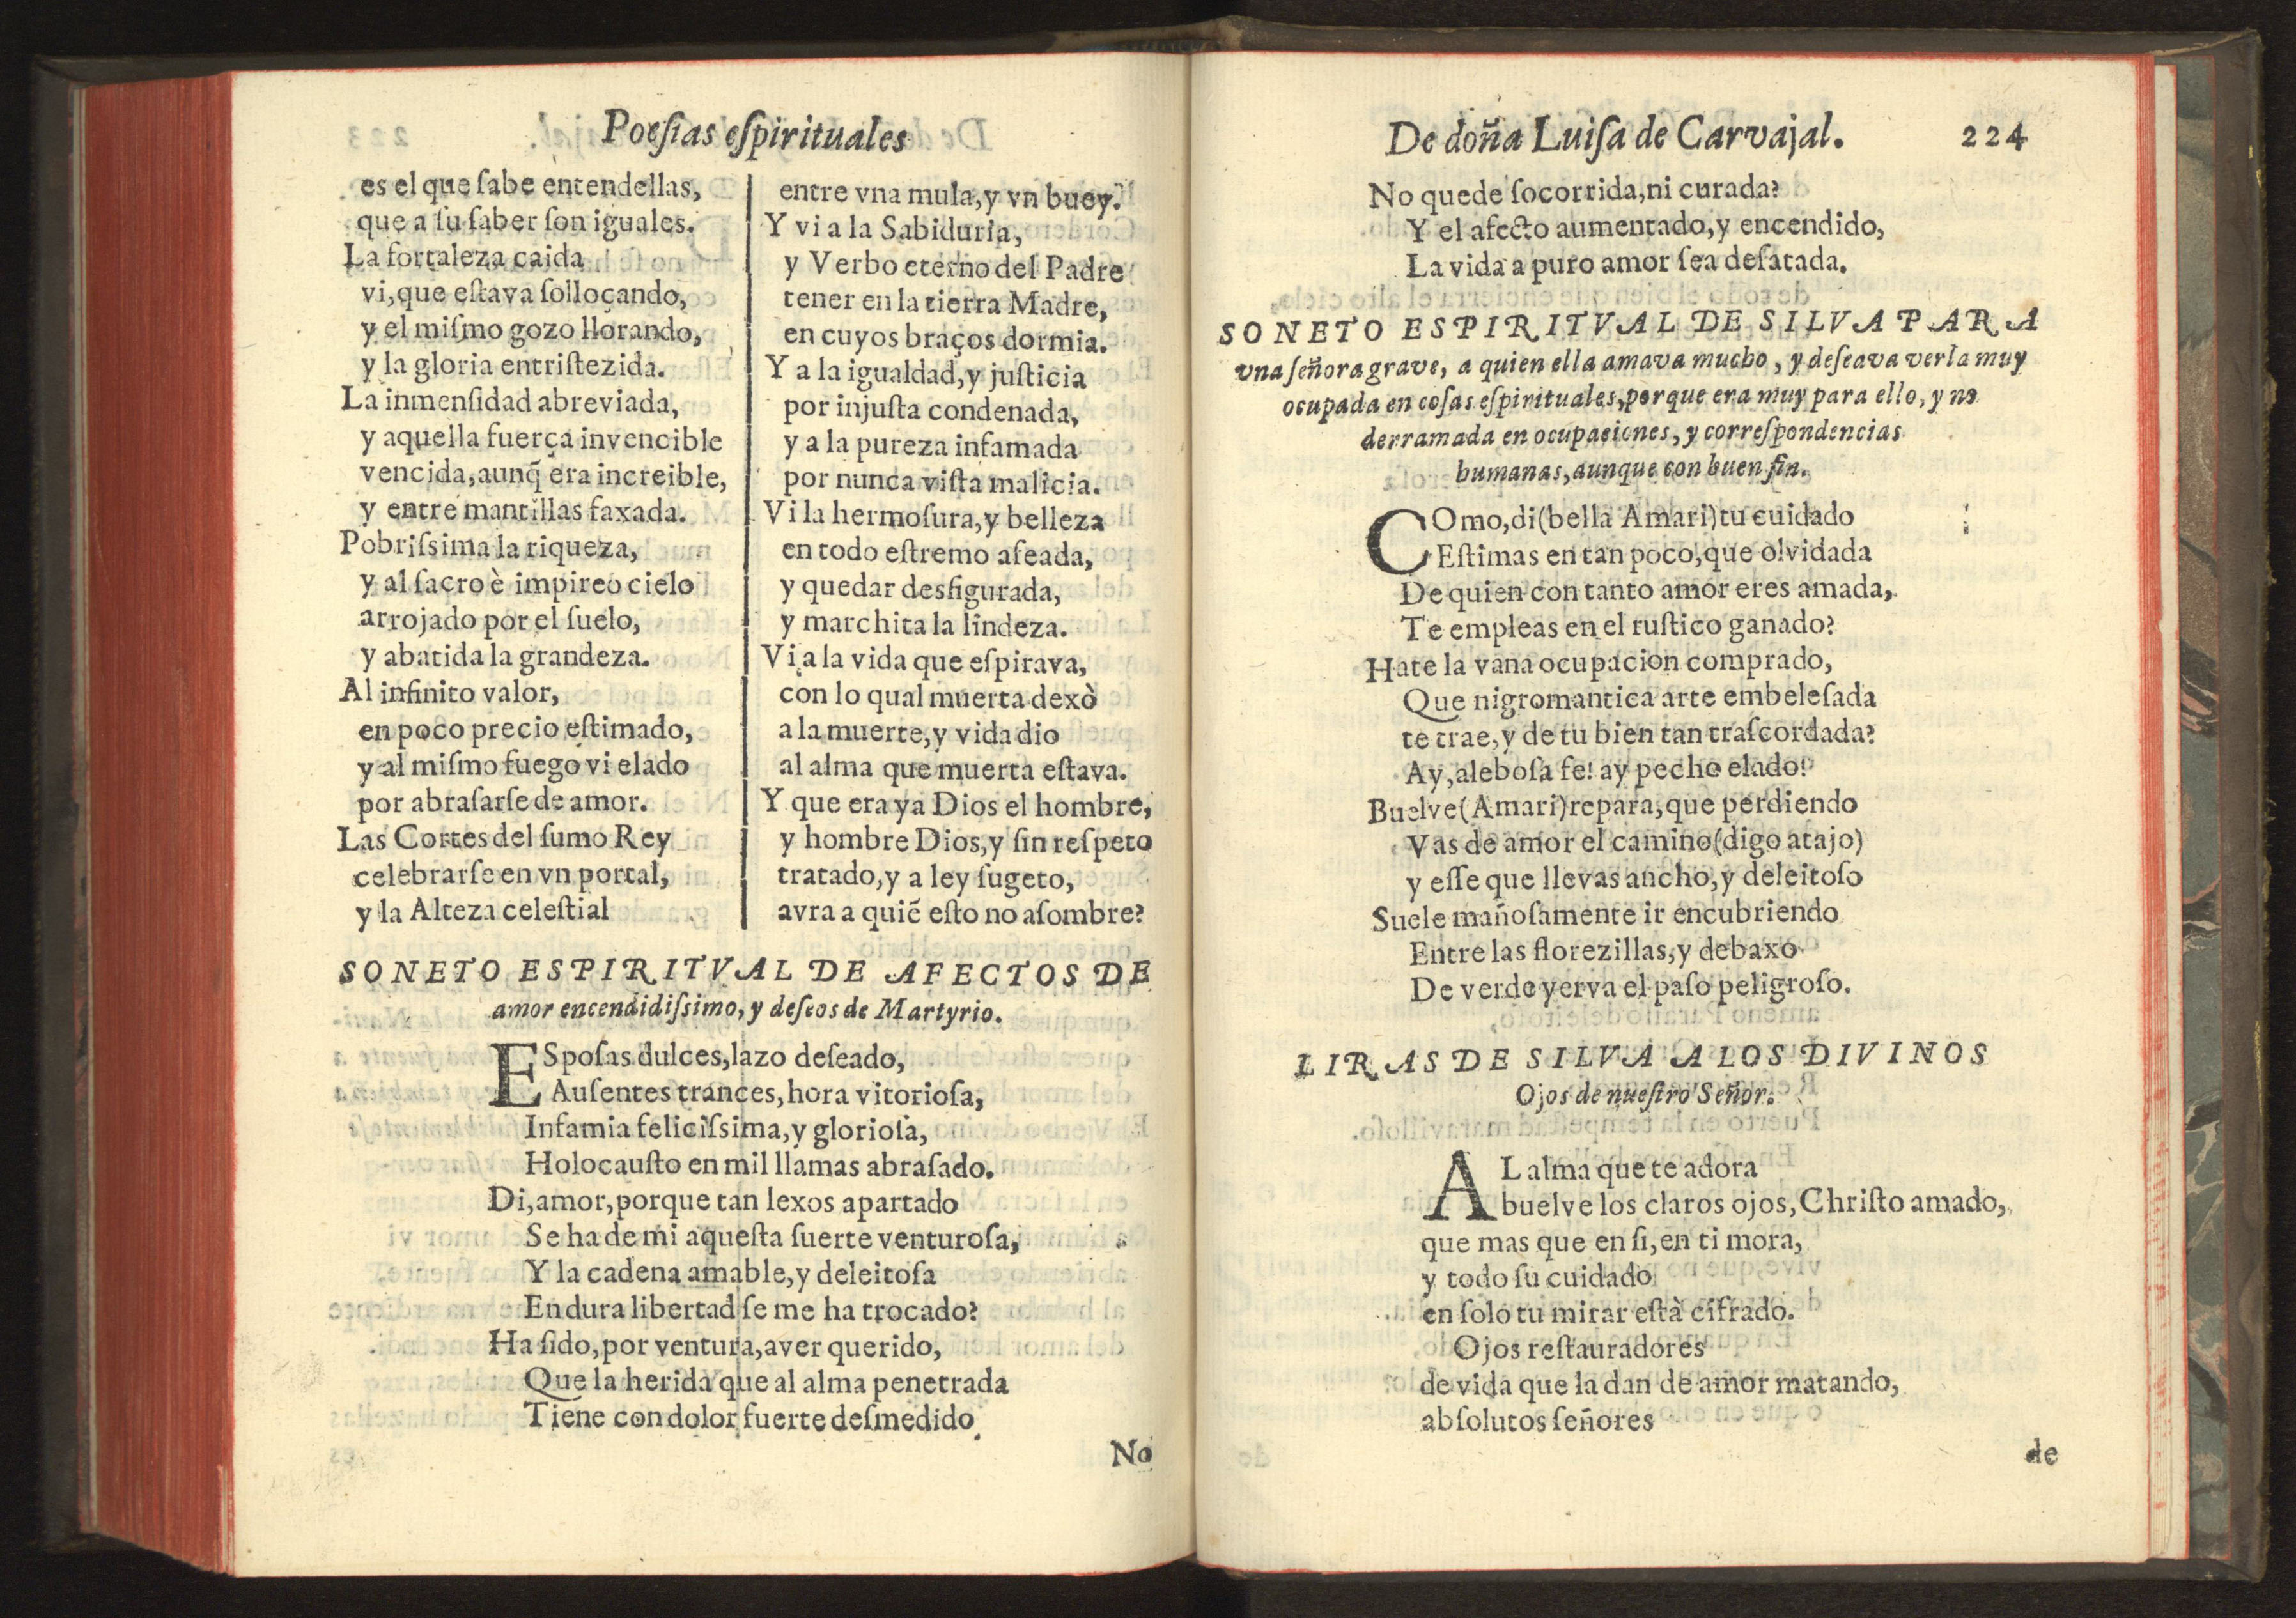 Poeſias eſpirituales
es el que ſabe entendellas,
que a ſu ſaber ſon iguales.
La fortaleza caida
vi, que eſtava ſolloçando,
y el miſmo gozo llorando,
y la gloria entriſtezida.
La inmenſidad abreviada,
y aquella fuerça invencible
vencida, aunq̃ era increible,
y entre mantillas faxada.
Pobriſsima la riqueza,
y al ſacro è impireo cielo
arrojado por el ſuelo,
y abatida la grandeza.
Al infinito valor,
en poco precio eſtimado,
y al miſmo fuego vi elado
por abraſarſe de amor.
Las Cortes del ſumo Rey
celebrarſe en vn portal,
y la Alteza celeſtial
entre vna mula, y vn buey.
Y vi a la Sabiduria,
y Verbo eterno del Padre
tener en la tierra Madre,
en cuyos braços dormia.
Y a la igualdad, y juſticia
por injuſta condenada,
y a la pureza infamada
por nunca viſta malicia.
Vi la hermoſura, y belleza
en todo eſtremo afeada,
y quedar desfigurada,
y marchita la lindeza.
Vi a la vida que eſpirava,
con lo qual muerta dexò
a la muerte, y vida dio
al alma que muerta eſtava.
Y que era ya Dios el hombre,
y hombre Dios, y ſin reſpeto
tratado, y a ley ſugeto,
avra a quiẽ eſto no aſombre?
SONETO ESPIRITVAL DE AFECTOS DE
amor encendidiſsimo, y deſeos de Martyrio.
ESpoſas dulces, lazo deſeado,
Auſentes trances, hora vitorioſa,
Infamia feliciſsima, y glorioſa,
Holocauſto en mil llamas abraſado.
Di, amor, porque tan lexos apartado
Se ha de mi aqueſta ſuerte venturoſa,
Y la cadena amable, y deleitoſa
En dura libertad ſe me ha trocado?
Ha ſido, por ventura, aver querido,
Que la herida que al alma penetrada
Tiene con dolor fuerte deſmedido
No
De doña Luiſa de Carvajal. 224
No quede ſocorrida, ni curada?
Y el afecto aumentado, y encendido,
La vida a puro amor ſea deſatada.
SONETO ESPIRITVAL DE SILVA PARA
vna ſeñora grave, a quien ella amava mucho, y deſeava verla muy
ocupada en coſas eſpirituales, porque era muy para ello, y no
derramada en ocupaciones, y correſpondencias
humanas, aunque con buen fin.
COmo, di (bella Amari) tu cuidado
Eſtimas en tan poco, que olvidada
De quien con tanto amor eres amada,
Te empleas en el ruſtico ganado?
Hate la vana ocupacion comprado,
Que nigromantica arte embeleſada
te trae, y de tu bien tan traſcordada?
Ay, aleboſa fe! ay pecho elado!
Buelve (Amari) repara, que perdiendo
Vas de amor el camino (digo atajo)
y eſſe que llevas ancho, y deleitoſo
Suele mañoſamente ir encubriendo
Entre las florezillas, y debaxo
De verde yerva el paſo peligroſo.
LIRAS DE SILVA A LOS DIVINOS
Ojos de nueſtro Señor.
AL alma que te adora
buelve los claros ojos, Chriſto amado,
que mas que en ſi, en ti mora,
y todo ſu cuidado
en ſolo tu mirar eſtà cifrado.
Ojos reſtauradores
de vida que la dan de amor matando,
abſolutos ſeñores
de